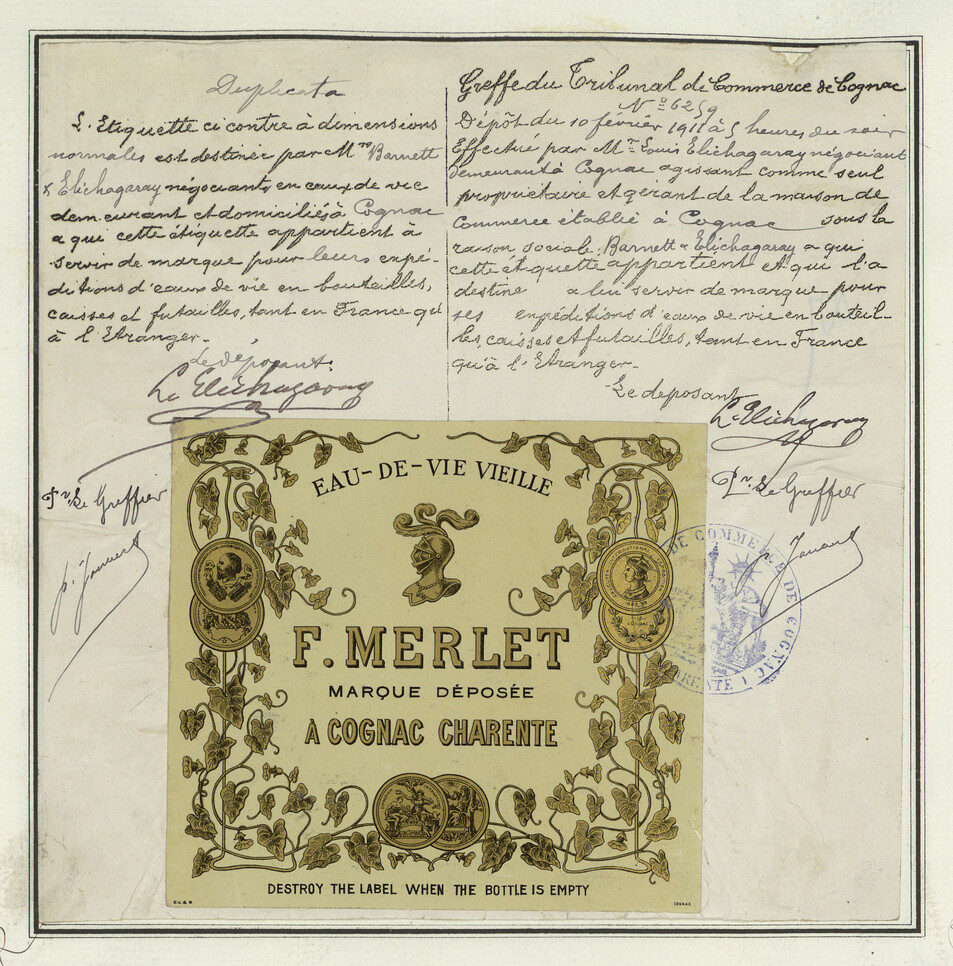 Duplicata
L'Etiquette ci contre à dimensions
normales est destinée par Mrs Barnett
& Elichagaray négociants en eaux de vie
demeurant et domiciliés à Cognac
a qui cette étiquette appartient à
servir de marque pour leurs expé-
ditions d'eaux de vie en bouteilles,
caisses et futailles, tant en France qu'
à l'Etranger.
Le déposant:
L. Elichagaray
Pr Le Greffier
Greffe du Tribunal de Commerce de Cognac
No 6259
Dépôt du 10 février 1911 à 5 heures du soir
Effectué par Mr Louis Elichagaray négociant
demeurant à Cognac agissant comme seul
propriétaire et gérant de la maison de
Commerce établie à Cognac sous la
raison sociale: Barnett & Elichagaray a qui
cette étiquette appartient et qui l'a
destine a lui servir de marque pour
ses expéditions d'eaux de vie en bouteil-
les, caisses et futailles, tant en France
qu'à l'Etranger.
Le deposant
L. Elichagaray
Pr Le Greffier
EAU-DE-VIE VIEILLE
F. MERLET
MARQUE DÉPOSÉE
À COGNAC CHARENTE
DESTROY THE LABEL WHEN THE BOTTLE IS EMPTY
COGNAC
DE COMMERCE DE COGNAC